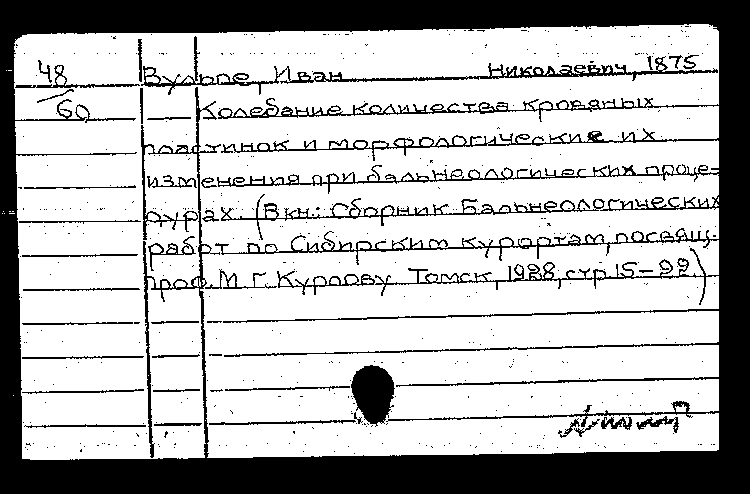 48
60
Вульпе, Иван Николаевич, 1875
Колебание количества кровяных
пластинок и морфологические их
изменения при бальнеологических проце-
дурах. (В кн.: Сборник Бальнеологических
работ по Сибирским курортам, посвящ.
проф. М. Г. Курлову. Томск, 1928, стр. 15-22.)